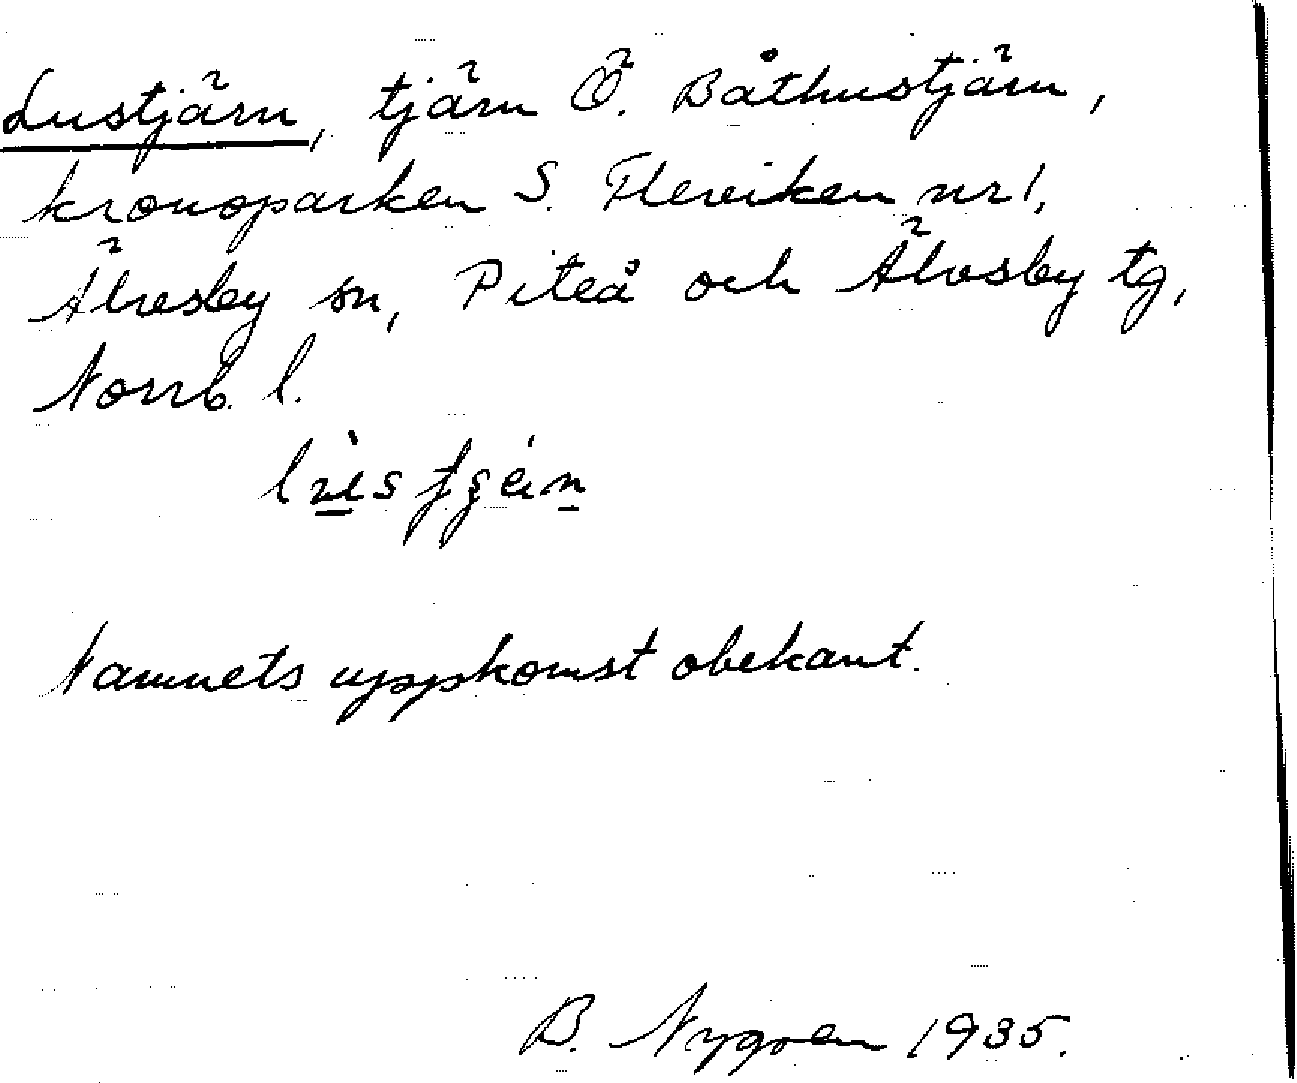 Lustjärn, tjärn Ö. Båthustjärn,
kronoparken S. Flerviken nr 1,
Älvsby sn, Piteå och Älvsby tg,
Norrb. l.
Namnets uppkomst obekant.
B. Nygren 1935.